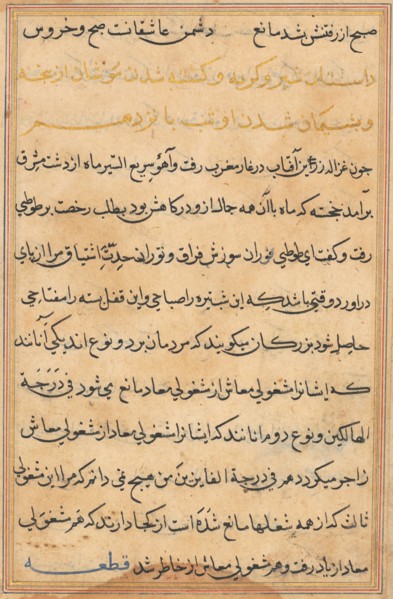 صبح از رفتنش شد مانع دشمن عاشقانت صبح و خروس
داستان شیر و گربه و کشته شدن موشان از
و پشیمان شدن او شب پانزدهم
چون غزاله زرین آفتاب در غار مغرب رفت و آهوء سریع السیر ماه از دشت مشرق
برآمد خجسته که ماه با آن همه جمال ازو در کاهش بود بطلب رخصت بر طوطی
رفت و گفت ای طوطی فوران سوزش فراق و ثوران حدت اشتیاق مرا از پای
در آورد وقتی باشد که این شب تیره را صباحی و این قفل بسته را مفتاحی
حاصل شود بزرگان میکویند که مردمان بر دو نوع اند یکی آنانند
که ایشانرا مشغولی معاش از مشغولی معاد مانع می شود فی درجة
الهالکین و نوع دوم آنانند که ایشانرا مشغولی معاد از مشغولی معاش
زاجر میکردد هم فی درجة الفایزین من هیچ نمی دانم که مرا این مشغولی
ثالث که از همه شغلها مانع شده است از کجا دارند که هم مشغولی
معاد از یاد رفت و هم مشغولی معاش از خاطر شد قطعه